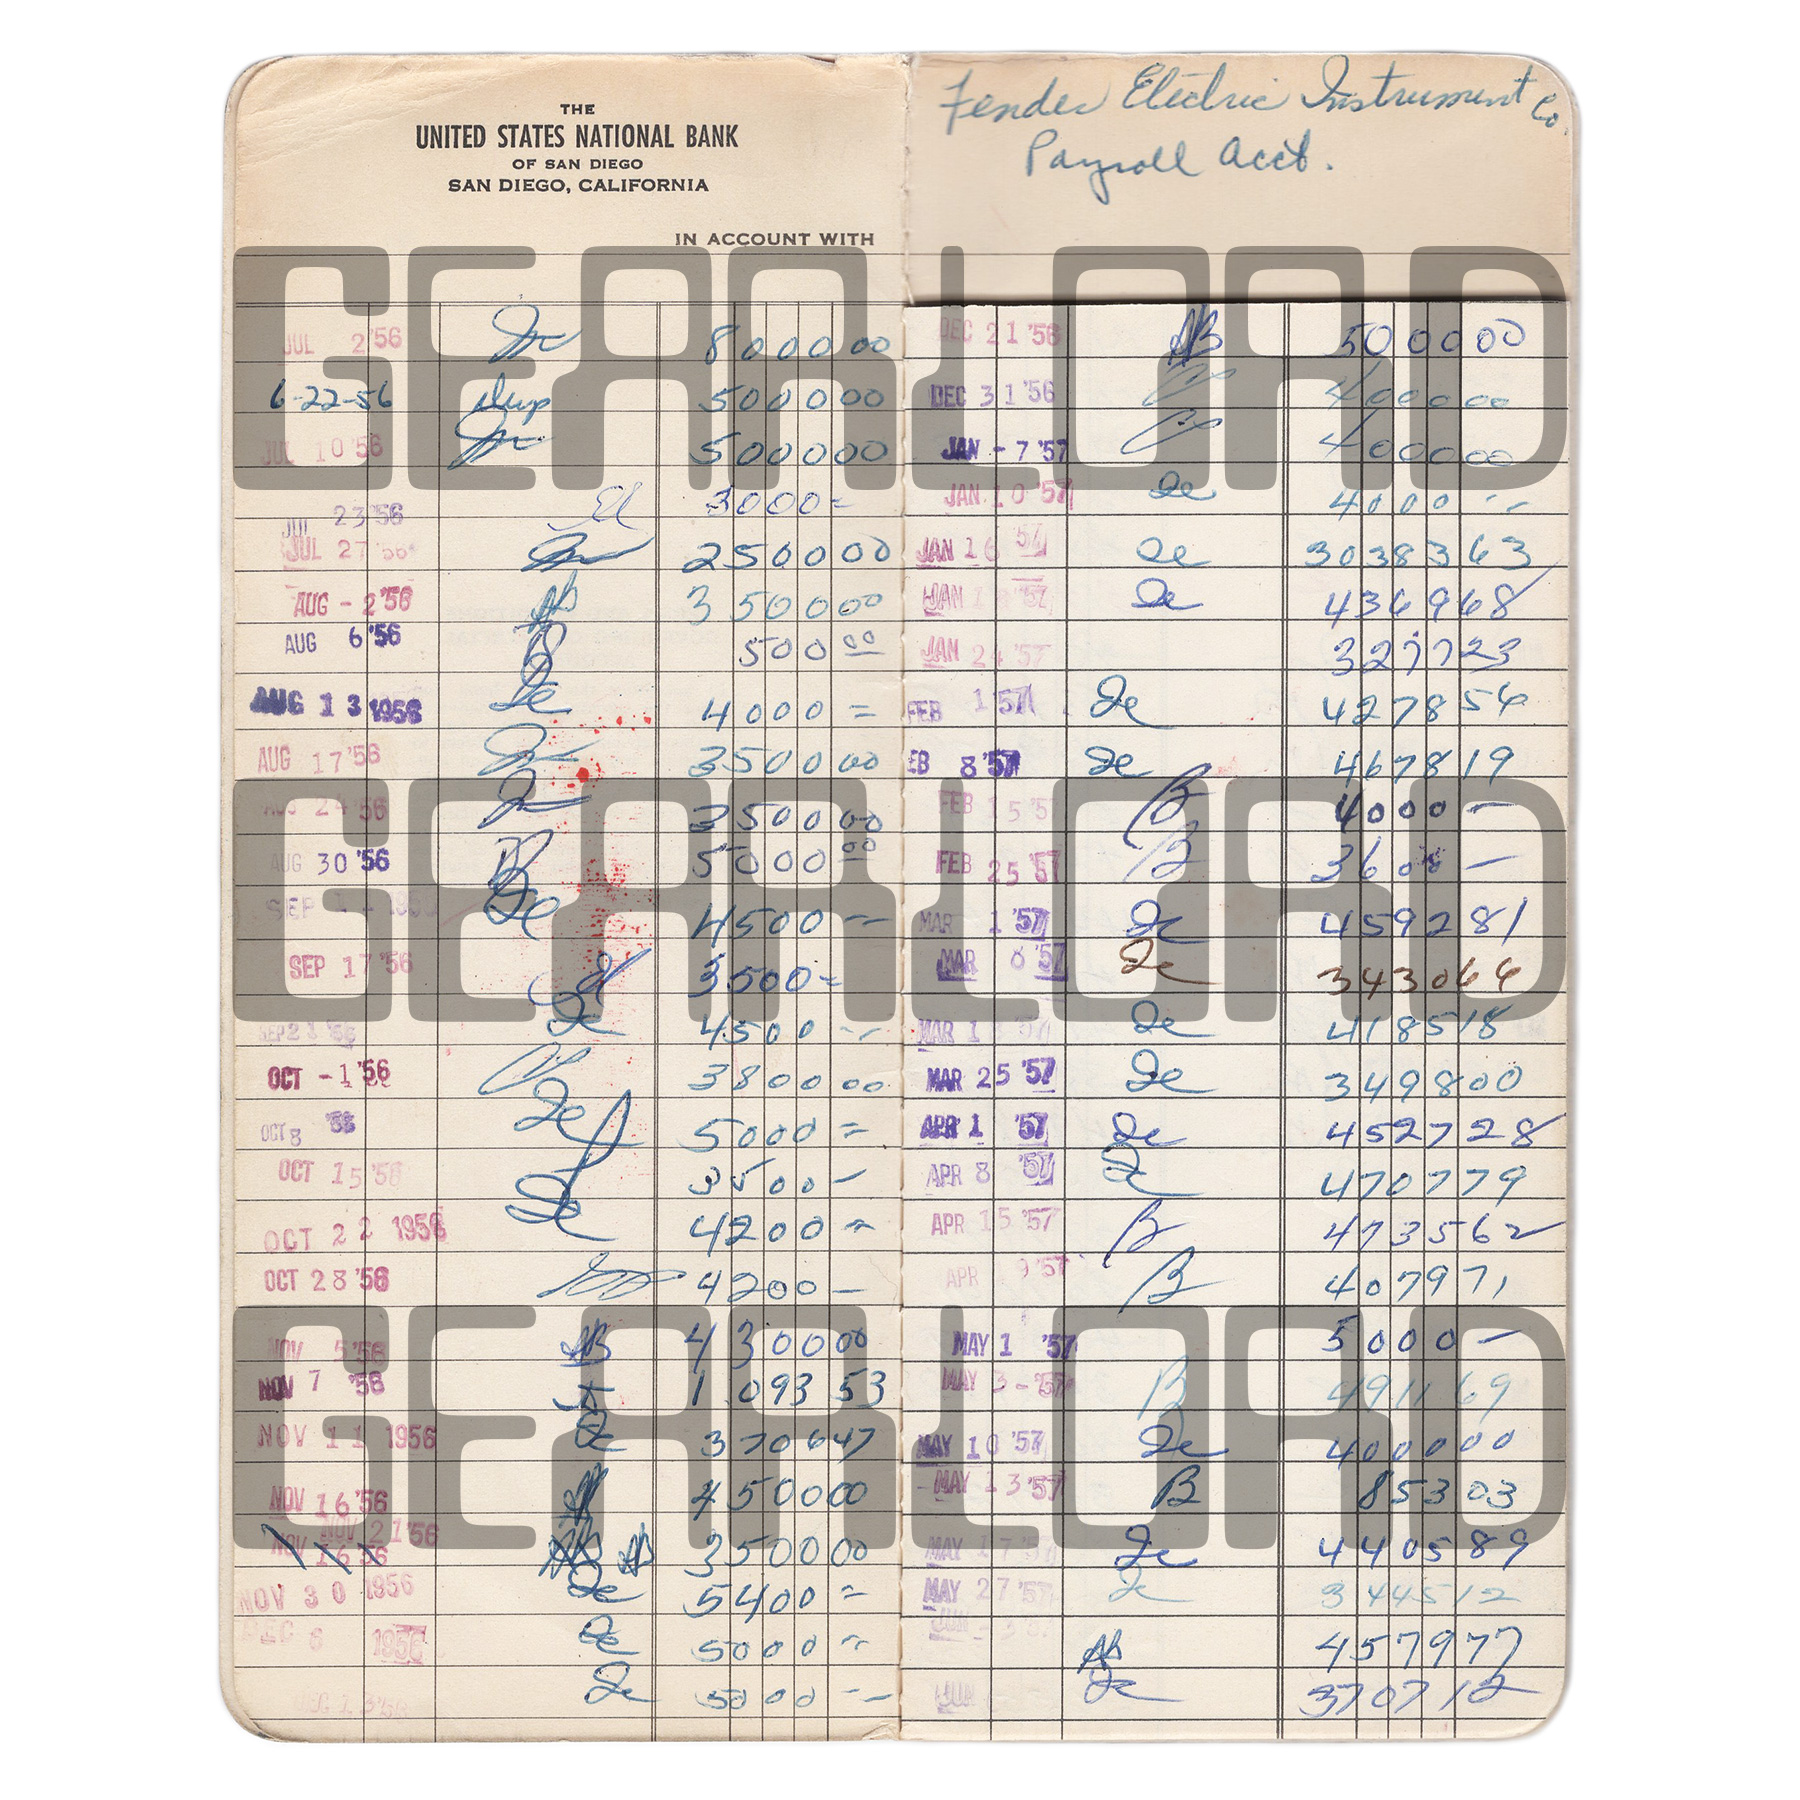 THE
UNITED STATES NATIONAL BANK
OF SAN DIEGO
SAN DIEGO, CALIFORNIA
IN ACCOUNT WITH
JUL 2 '56 8000 00
6-22-56 Dup 5000 00
JUL 10 '56 5000 00
JUL 23 '56 3000 =
JUL 27 '56 2500 00
AUG - 2 '56 AB 3500 00
AUG 6 '56 B 500 00
AUG 13 1956 De 4000 =
AUG 17 '56 3500 00
AUG 24 '56 3500 00
AUG 30 '56 B 5000 00
SEP 1956 De 4500 --
SEP 17 '56 3500 =
SEP 21 '56 De 4500 --
OCT - 1 '56 3800 00
OCT 8 '56 De 5000 =
OCT 15 '56 3500 -
OCT 22 1956 De 4200 =
OCT 28 '56 4200 -
NOV 5 '56 AB 4300 00
NOV 7 '56 1093 53
NOV 11 1956 De 3706 47
NOV 16 '56 4500 00
NOV 21 '56
NOV 16 56 AB AB 3500 00
NOV 30 1956 De 5400 =
DEC 6 1956 De 5000 =
DEC 13 '56 De 5000 --
Fender Electric Instrument Co.
Payroll Acct.
DEC 21 '56 AB 5000 00
DEC 31 '56 4000 00
JAN - 7 '57 4000 00
JAN 10 '57 De 4000 --
JAN 16 '57 De 30383 63
JAN '57 De 4369 68
JAN 24 '57 3277 23
FEB 1 '57 De 4278 54
EB 8 '57 De 4678 19
FEB 15 '57 B 4000 -
FEB 25 '57 B 3600 -
MAR 1 '57 De 4592 81
MAR 8 '57 De 3430 64
MAR 1 '57 De 4185 18
MAR 25 '57 De 3498 00
APR 1 '57 De 4527 28
APR 8 '57 De 4707 79
APR 15 '57 B 4735 62
APR 9 '57 B 4079 71
MAY 1 '57 5000 -
MAY 3 - '57 B 4911 69
MAY 10 '57 De 4000 00
MAY 13 '57 B 853 03
MAY 17 '57 De 4405 89
MAY 27 '57 De 3445 12
JUN - 3 AB 4579 77
JUN De 3707 12
GEARLOAD
GEARLOAD
GEARLOAD